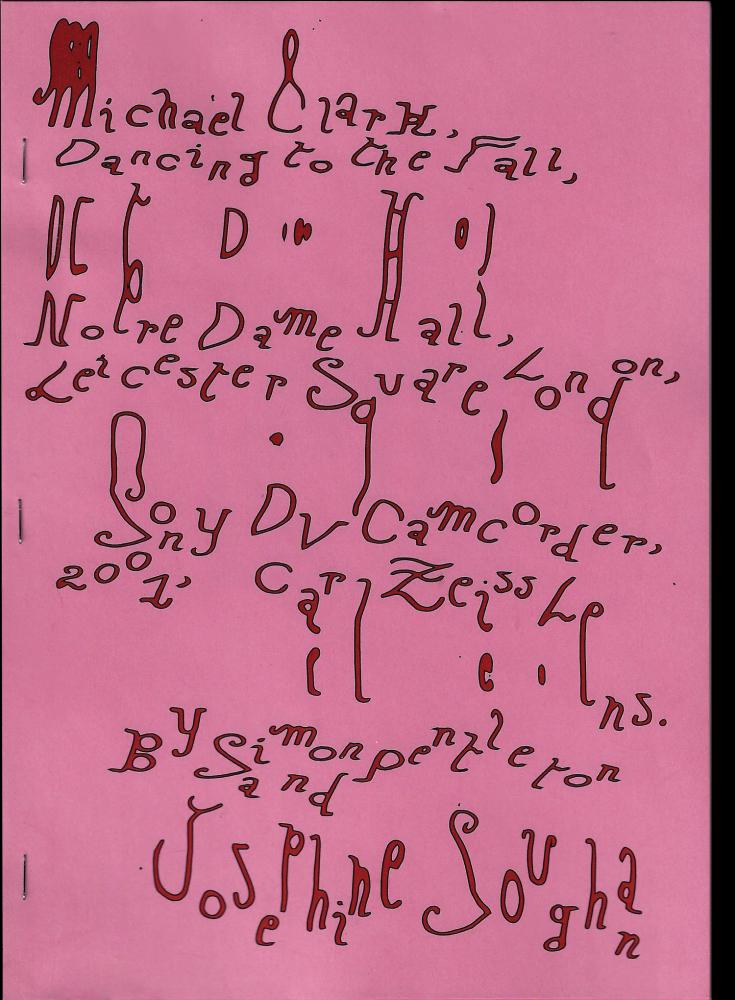 Michael Clark,
Dancing to the Fall,
Notre Dame Hall,
Leicester Square London,
Sony DV Camcorder,
2001, Carl Zeiss Lens.
By Simon Pentleton
and
Josephine Soughan